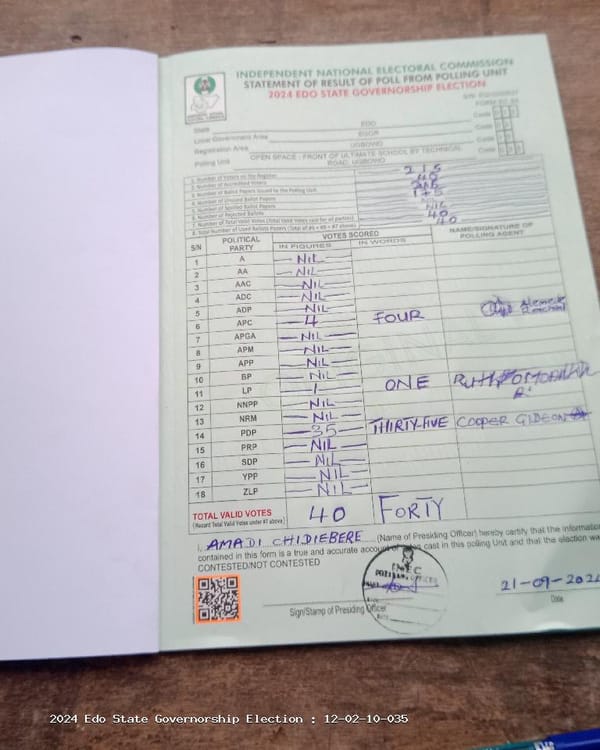 INDEPENDENT NATIONAL ELECTORAL COMMISSION
STATEMENT OF RESULT OF POLL FROM POLLING UNIT
2024 EDO STATE GOVERNORSHIP ELECTION
State EDO Code
Local Government Area EGOR Code
Registration Area UGBOWO Code
Polling Unit OPEN SPACE - FRONT OF ULTIMATE SCHOOL BY TECHNICAL ROAD, UGBOWO Code
1. Number of Voters on the Register 215
2. Number of Accredited Voters 40
3. Number of Ballot Papers Issued to the Polling Unit 215
4. Number of Unused Ballot Papers 175
5. Number of Spoiled Ballot Papers
6. Number of Rejected Ballots NIL
7. Number of Total Valid Votes (Total Valid Votes cast for all parties) 40
8. Total Number of Used Ballot Papers (Total of #5 + #6 + #7 above) 40
S/N POLITICAL PARTY VOTES SCORED NAME/SIGNATURE OF POLLING AGENT
IN FIGURES IN WORDS
1 A NIL
2 AA NIL
3 AAC NIL
4 ADC NIL
5 ADP NIL
6 APC 4 FOUR
7 APGA NIL
8 APM NIL
9 APP NIL
10 BP NIL
11 LP 1 ONE
12 NNPP NIL
13 NRM NIL
14 PDP 35 THIRTY-FIVE COOPER GIDEON
15 PRP NIL
16 SDP NIL
17 YPP NIL
18 ZLP NIL
TOTAL VALID VOTES 40 FORTY
(Record Total Valid Votes under #7 above)
I, AMADI CHIDIEBERE (Name of Presiding Officer) hereby certify that the information
contained in this form is a true and accurate account of votes cast in this polling Unit and that the election was
CONTESTED/NOT CONTESTED
INEC
21-09-2024
Sign/Stamp of Presiding Officer Date
2024 Edo State Governorship Election : 12-02-10-035